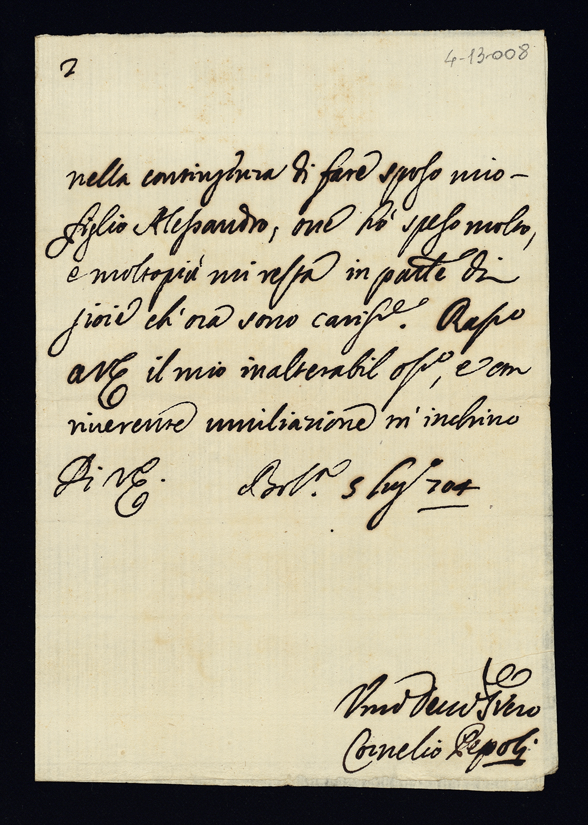 2
4-13-008
nella contingenza di fare sposo mio
figlio Alessandro, oue hò speso molto,
e molto più mi resta in parte di
gioie ch'ora sono cariss.e. Rass.o
a VE il mio inalterabil oss.o, e con
riuerente umiliazione m'inchino
Di VE. Bol.a 5 lug.o 704
Um.o Deu.o Ser.o
Cornelio Pepoli